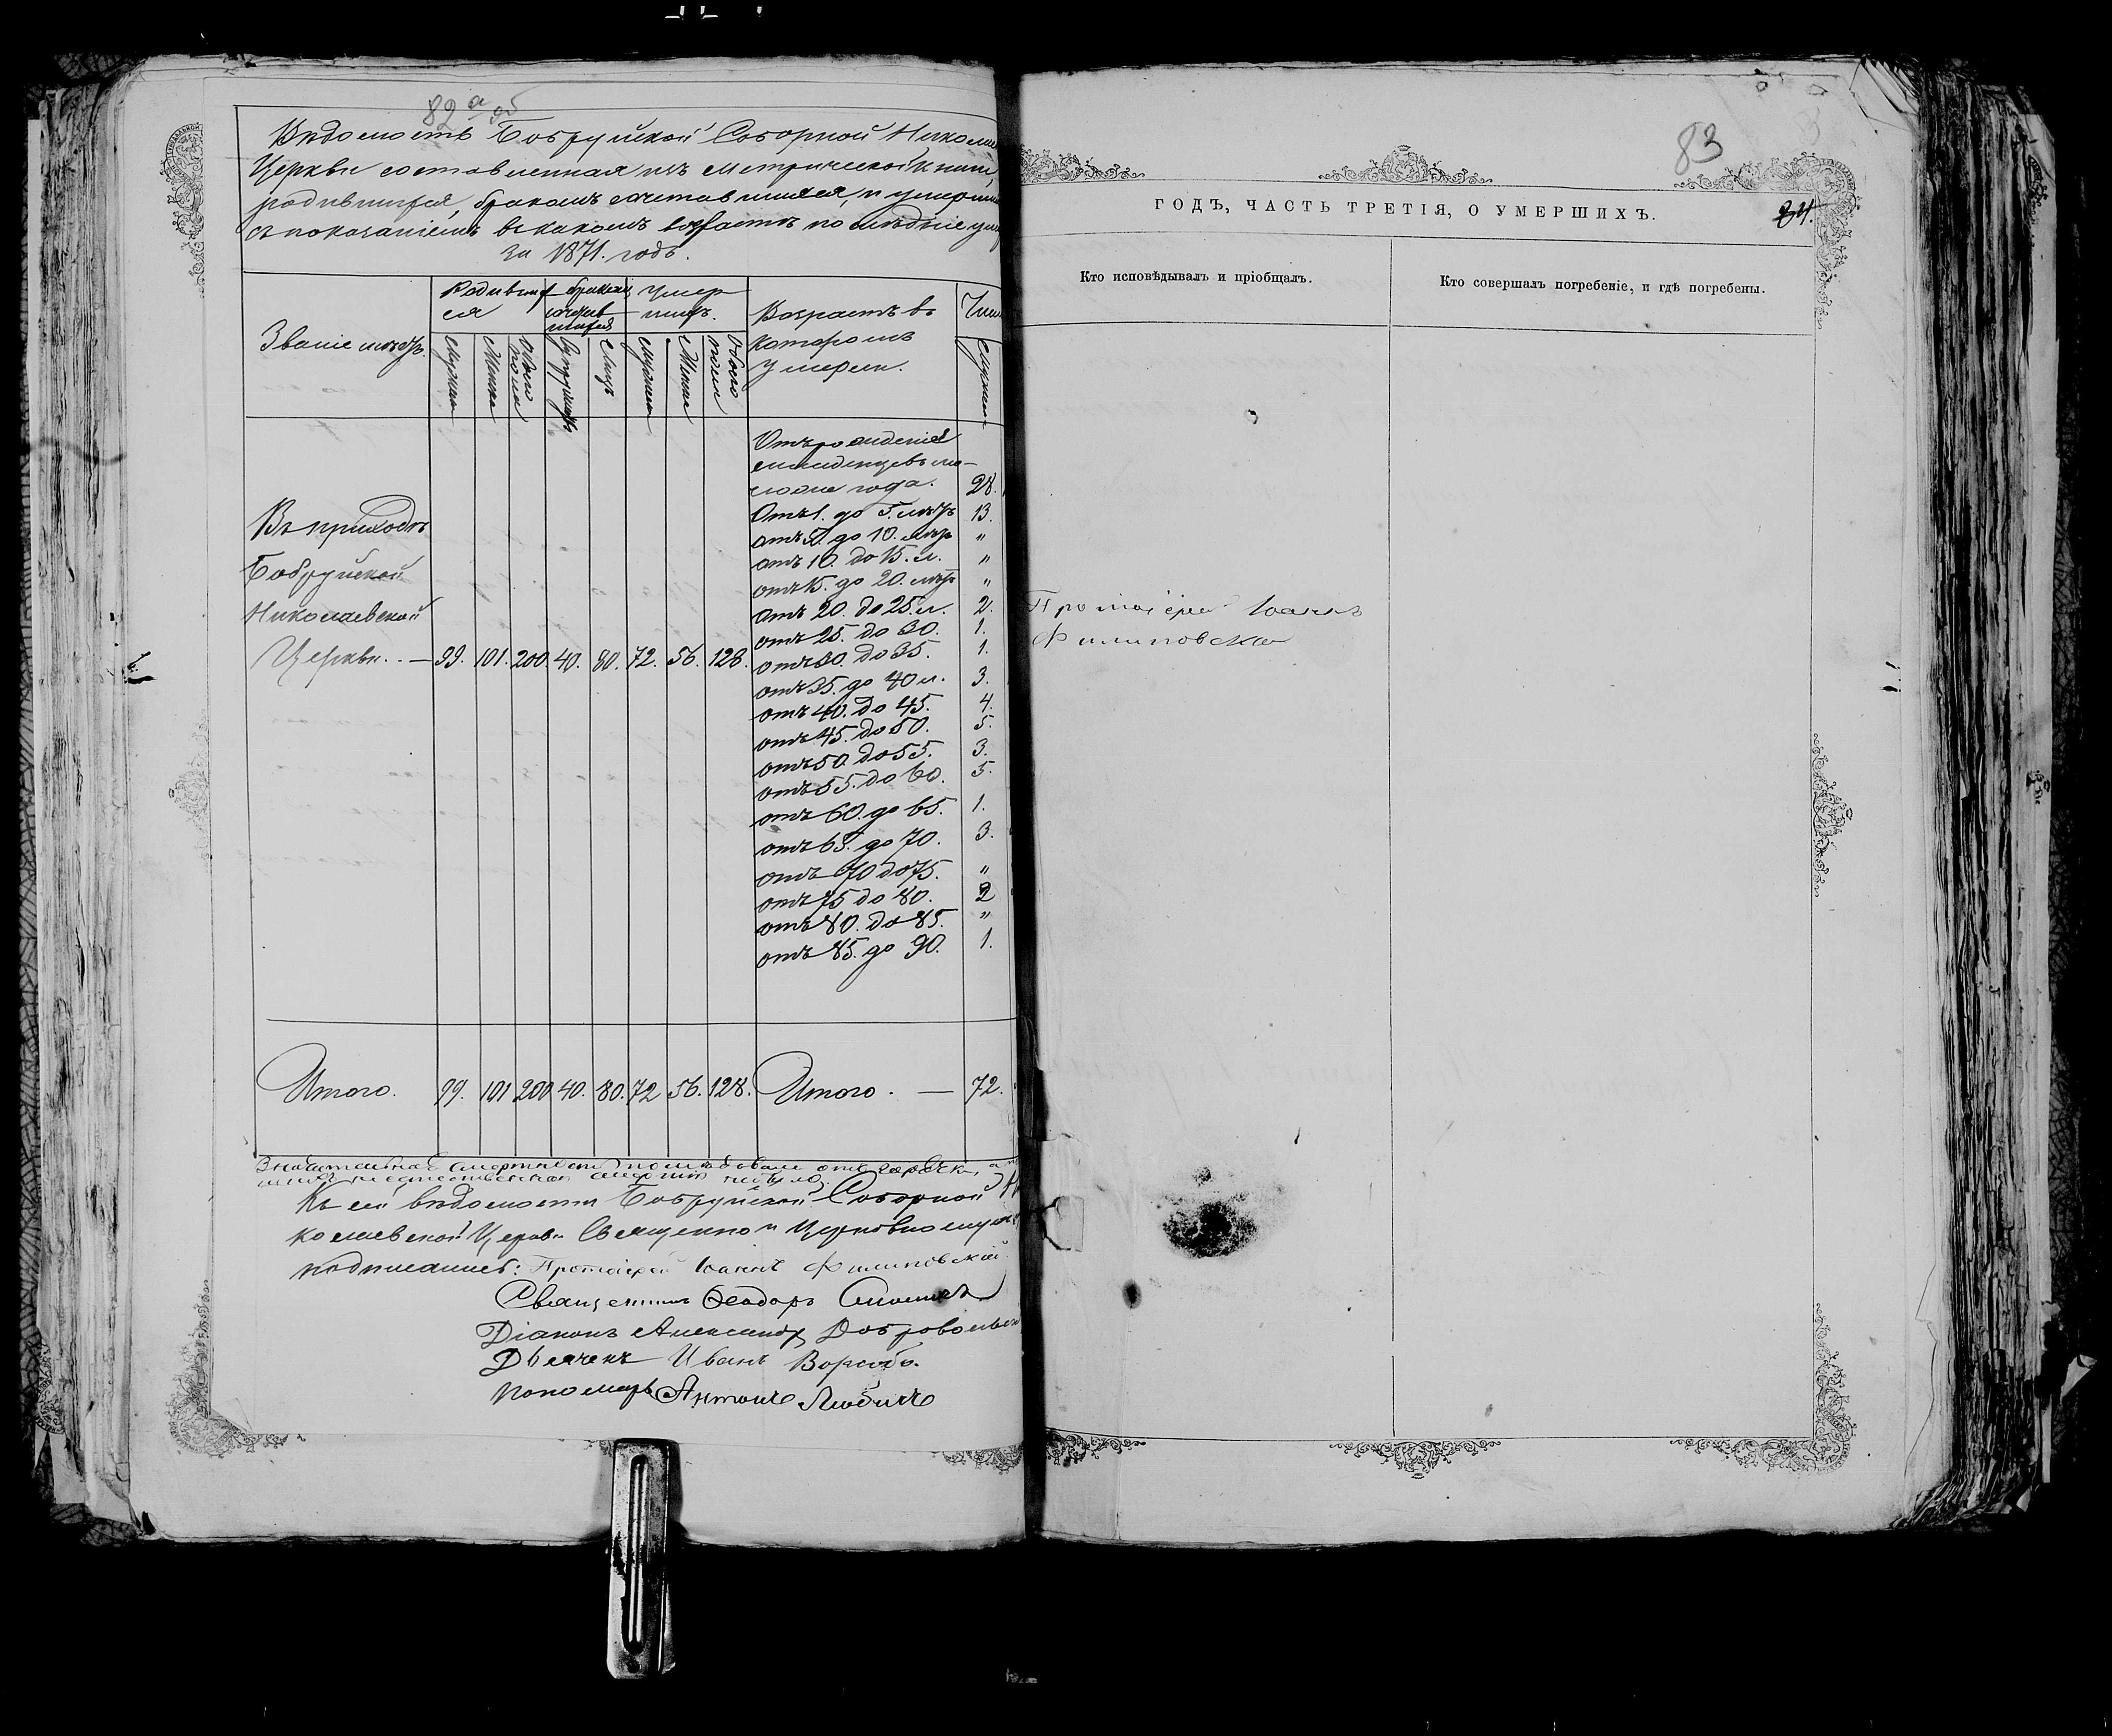 82 а об
Вѣдомость Бобруйской Соборной Николаев
Церкви составленная изъ метрической книги
родившихся, бракомъ сочетавшихся, и умерши
съ показаніемъ въ какомъ возрастѣ послѣдніе ум
за 1871. годъ.
Званіе мѣстъ.
Родившіеся
бракомъ сочетавшихся
умершихъ.
Возрастъ въ котаромъ умерли.
Число
Мужска
Женска
Обоего пола
Супружествъ
Лицъ
Мужска
Женска
Обоего пола
Мужска
Отъ рожденія
младенцевъ мо-
ложе года. 28.
Отъ 1. до 5. лѣтъ 13.
отъ 5. до 10. лѣтъ "
отъ 10. до 15. л. "
отъ 15. до 20. лѣтъ "
отъ 20. до 25. л. 2.
отъ 25. до 30. 1.
отъ 30. до 35. 1.
отъ 35. до 40 л. 3.
отъ 40. до 45. 4.
отъ 45. до 50. 5.
отъ 50 до 55. 3.
отъ 55. до 60. 5.
отъ 60. до 65. 1.
отъ 65. до 70. 3.
отъ 70 до 75. "
отъ 75 до 80. 2
отъ 80. до 85. "
отъ 85. до 90. 1.
Въ приходѣ
Бобруйской
Николаевской
Церкви. — 99. 101. 200. 40. 80. 72. 56. 128.
Итого. 99. 101 200 40. 80. 72 56. 128. Итого. — 72.
Къ сей вѣдомости Бобруйской Соборной Ни
колаевской Церкви Священно и Церковнослуж
подписались: Протоіерей Іоаннъ Филиповскій
Священникъ Ѳеодоръ
Діаконъ Александръ Добровольск
Дьячекъ Иванъ
Пономарь Антоній
83
84.
ГОДЪ, ЧАСТЬ ТРЕТІЯ, О УМЕРШИХЪ.
Кто исповѣдывалъ и пріобщалъ.
Кто совершалъ погребеніе, и гдѣ погребены.
Протоіерей Іоаннъ
Филиповскій